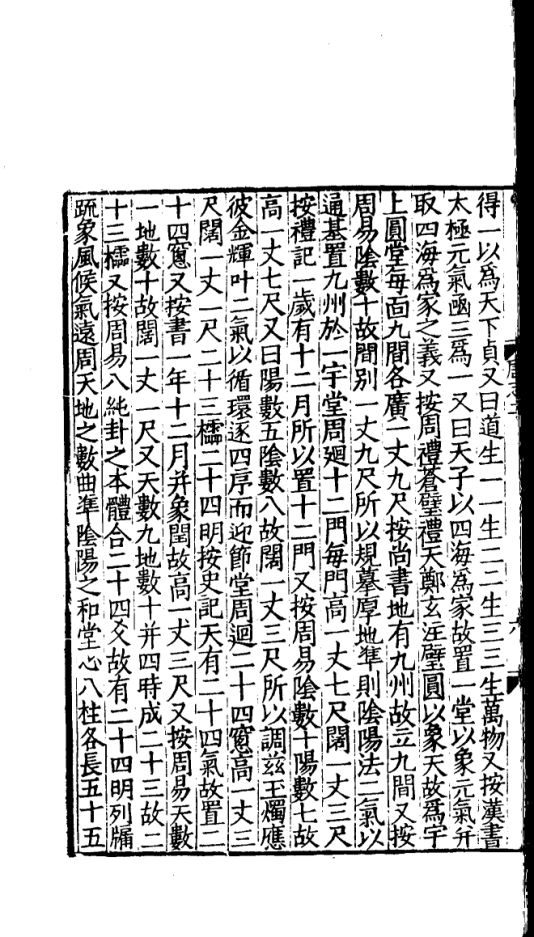 得一以爲天下貞又曰道生一一生二二生三三生萬物又按漢書
太極元氣凾三爲一又曰天子以四海爲家故置一堂以象元氣并
取四海爲家之義又按周禮蒼璧禮天鄭玄注璧圓以象天故爲宇
上圓堂每面九間各廣一丈九尺按尚書地有九州故立九間又按
周易陰數十故間別一丈九尺所以規摹厚地準則陰陽法二氣以
通基置九州於一宇堂周廻十二門每門高一丈七尺闊一丈三尺
按禮記一歲有十二月所以置十二門又按周易陰數十陽數七故
高一丈七尺又曰陽數五陰數八故闊一丈三尺所以調茲玉燭應
彼金輝叶二氣以循環逐四序而迎節堂周迴二十四窻高一丈三
尺闊一丈一尺二十三櫺二十四明按史記天有二十四氣故置二
十四窻又按書一年十二月并象閏故高一丈三尺又按周易天數
一地數十故闊一丈一尺又天數九地數十并四時成二十三故二
十三櫺又按周易八純卦之本體合二十四爻故有二十四明列牖
疏象風候氣遠周天地之數曲準陰陽之和堂心八柱各長五十五